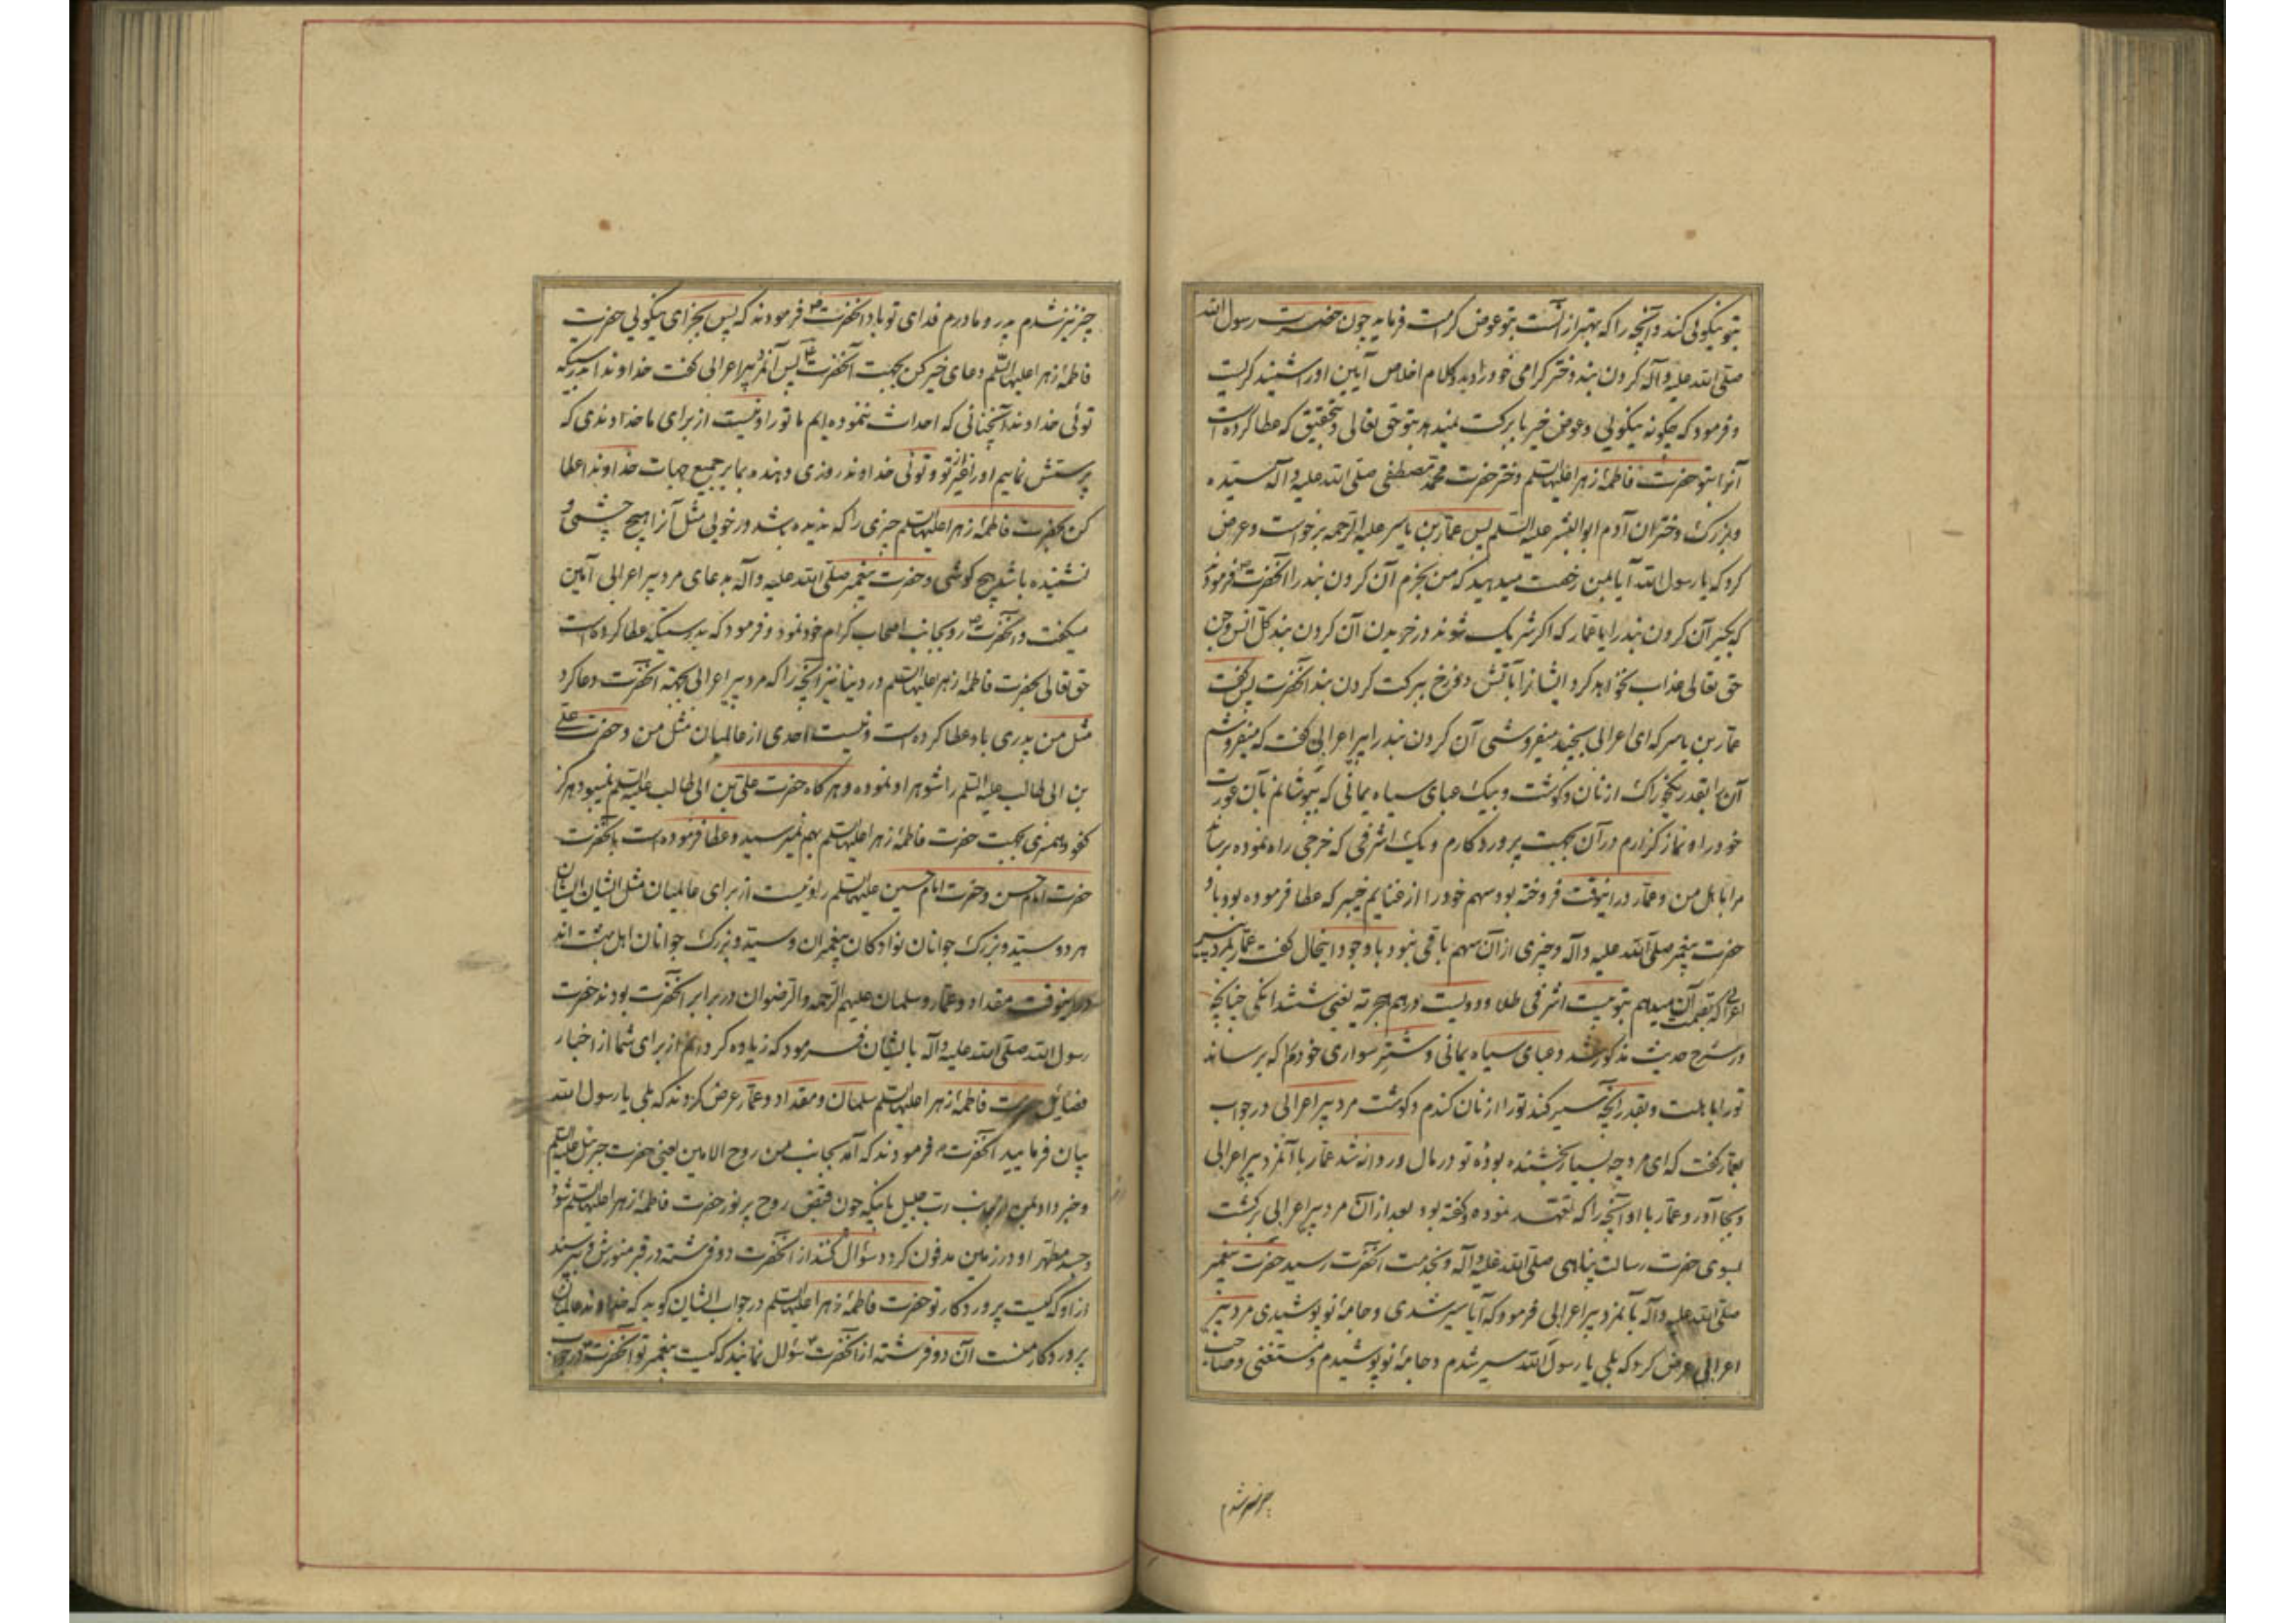 بتو نیکوئی کند و آنچه را که بهتر از آنست بتو عوض کرامت فرماید چون حضرت رسول الله
صلی الله علیه و آله کردن بند دختر کرامی خود را دید و کلام اخلاص آیین او را شنید کریست
و فرمود که چکونه نیکوئی و عوض خیر با برکت نمیدهد بتو حق تعالی و بتحقیق که عطا کرده است
آنرا بتو حضرت فاطمهٔ زهرا علیها السلم دختر حضرت محمد مصطفی صلی الله علیه و آله سیّده
و بزرک دختران آدم ابو البشر علیه السلم پس عمار بن یاسر علیه الرحمه برخواست و عرض
کرد که یا رسول الله آیا بمن رخصت میدهید که من بخرم آن کردن بند را آنحضرت ص فرمودند
که بخر آن کردن بند را یا عمار که اکر شریک شوند در خریدن آن کردن بند کل انس و جن
حق تعالی عذاب نخواهد کرد ایشانرا بآتش دوزخ ببرکت کردن بند آنحضرت پس کفت
عمار بن یاسر که ای اعرابی بچند میفروشی آن کردن بند را پیر اعرابی کفت که میفروشم
آن را بقدر یکخوراک از نان و کوشت و بیک عبای سیاه یمانی که بپوشانم بآن عورت
خود را و نماز کزارم در آن بجهت پروردکارم و یک اشرفی که خرجی راه نموده برساند
مرا باهل من و عمار در اینوقت فروخته بود سهم خود را از غنایم خیبر که عطا فرموده بود باو
حضرت پیغمبر صلی الله علیه و آله و چیزی از آن سهم باقی نبود با وجود اینحال کفت عمار بمرد پیر
اعرابی که بقیمت آن میدهم بتو بیست اشرفی طلا و دویست درهم هجریه یعنی ششدانکی چنانچه
در شرح حدیث مذکور شد و عبای سیاه یمانی و شتر سواری خودم را که برساند
تو را باهلت و بقدر آنچه سیر کند تو را از نان کندم و کوشت مرد پیر اعرابی در جواب
بعمار کفت که ای مرد چه بسیار بخشنده بودهٔ تو در مال و روانه شد عمار با آنمرد پیر اعرابی
و بجا آورد عمار با او آنچه را که تعهد نموده و کفته بود بعد از آن مرد پیر اعرابی برکشت
بسوی حضرت رسالت پناهی صلی الله علیه و آله و بخدمت آنحضرت رسید حضرت پیغمبر
صلی الله علیه و آله بآنمرد پیر اعرابی فرمود که آیا سیر شدی و جامهٔ نو پوشیدی مرد پیر
اعرابی عرض کرد که بلی یا رسول الله سیر شدم و جامهٔ نو پوشیدم و مستغنی و صاحب
چیز نیز شدم
چیز نیز شدم پدر و مادرم فدای تو باد آنحضرت ص فرمودند که پس بجزای نیکوئی حضرت
فاطمهٔ زهرا علیها السلم دعای خیر کن بجهت آنحضرت پس آنمرد پیر اعرابی کفت خداوندا بدرستیکه
توئی خداوند آنچنانی که احداث ننموده‌ایم ما تو را و نیست از برای ما خداوندی که
پرستش نماییم او را غیر از تو و توئی خداوند روزی دهنده بما بر جمیع جهات خداوندا عطا
کن بحضرت فاطمهٔ زهرا علیها السلم چیزی را که ندیده باشد در خوبی مثل آنرا هیچ چشمی و
نشنیده باشد هیچ کوشی و حضرت پیغمبر صلی الله علیه و آله بدعای مرد پیر اعرابی آمین
میکفت و آنحضرت ص رو بجانب اصحاب کرام خود نمود و فرمود که بدرستیکه عطا کرده است
حق تعالی بحضرت فاطمهٔ زهرا علیها السلم در دنیا نیز آنچه را که مرد پیر اعرابی بجهة آنحضرت دعا کرد
مثل من پدری باو عطا کرده است و نیست احدی از عالمیان مثل من و حضرت علی
بن ابی طالب علیه السلم را شوهر او نموده و هر کاه حضرت علی بن ابی طالب علیه السلم نمیبود هرکز
کفو و همسری بجهت حضرت فاطمهٔ زهرا علیها السلم بهم نمیرسید و عطا فرموده است بآنحضرت
حضرت امام حسن و حضرت امام حسین علیهما السلم را و نیست از برای عالمیان مثل ایشان ایشان
هر دو سیّد و بزرک جوانان نوادکان پیغمبران و سیّد و بزرک جوانان اهل بهشت اند
در اینوقت مقداد و عمار و سلمان علیهم الرحمه و الرضوان در برابر آنحضرت بودند حضرت
رسول الله صلی الله علیه و آله بایشان فرمود که زیاده کردانم از برای شما از اخبار
فضایل حضرت فاطمهٔ زهرا علیها السلم سلمان و مقداد و عمار عرض کردند که بلی یا رسول الله
بیان فرمایید آنحضرت ص فرمودند که آمد بجانب من روح الامین یعنی حضرت جبرئیل علیه السلم
و خبر داد بمن از جانب رب جلیل باینکه چون قبض روح پر نور حضرت فاطمهٔ زهرا علیها السلم شود
و جسد مطهر او در زمین مدفون کردد سؤال کنند از آنحضرت دو فرشته در قبر منورش و پرسند
از او که کیست پروردکار تو حضرت فاطمهٔ زهرا علیها السلم در جواب ایشان کوید که خداوند عالمیان
پروردکار منست آن دو فرشته از آنحضرت سؤال نمایند که کیست پیغمبر تو آنحضرت در جواب